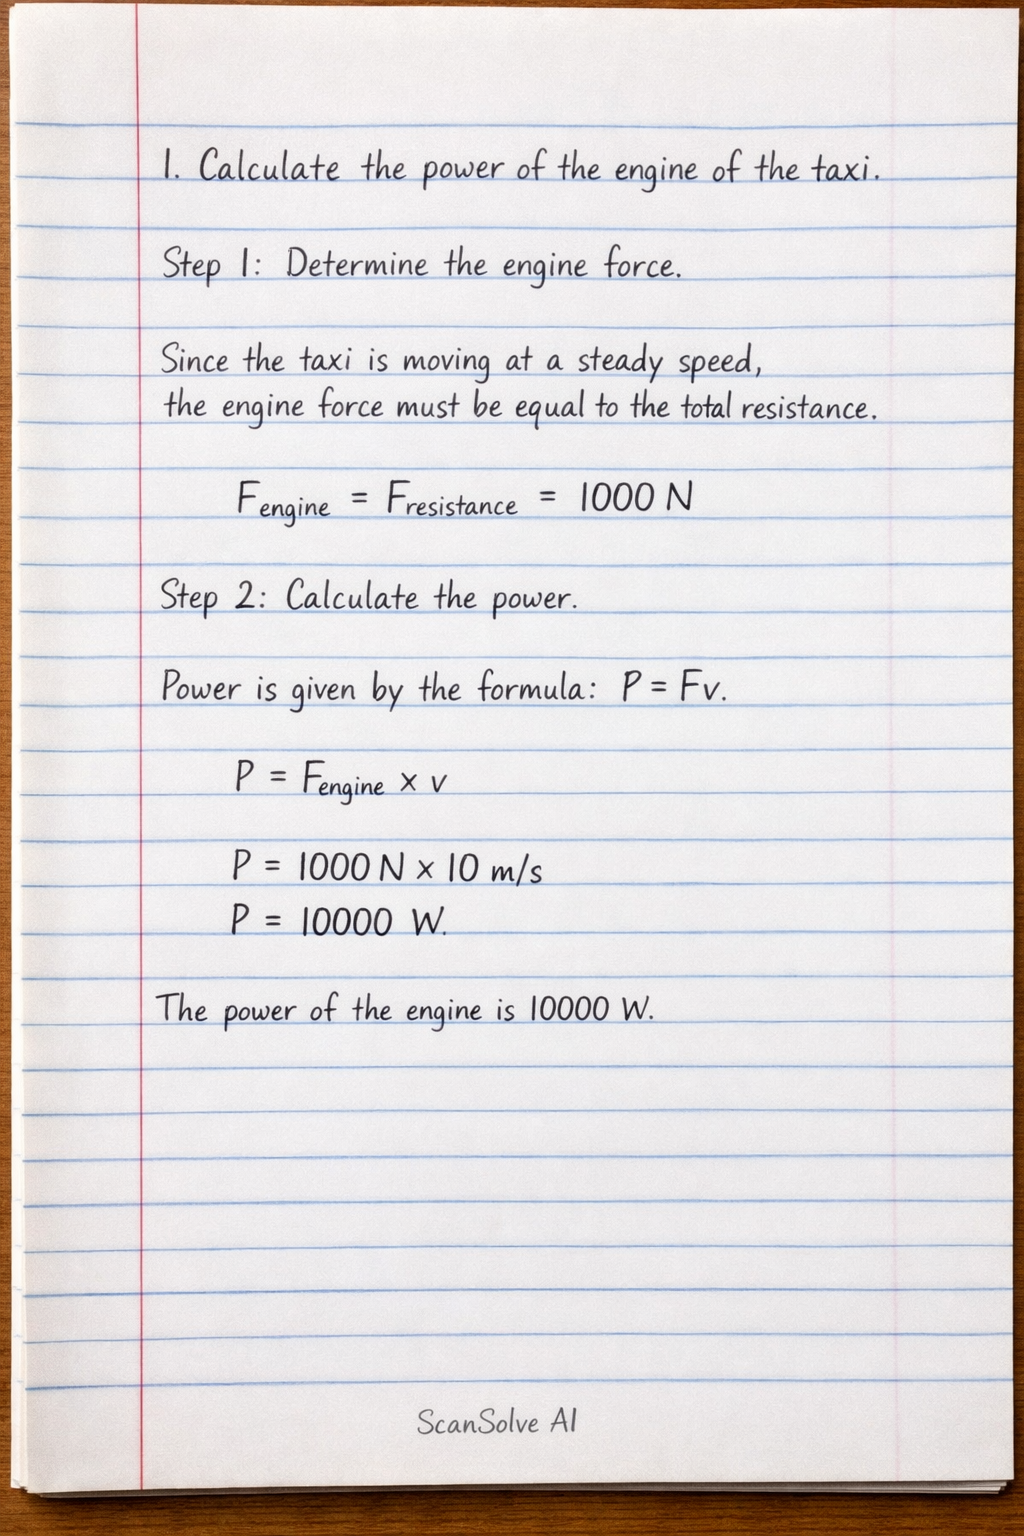 1. Calculate the power of the engine of the taxi.
Step 1: Determine the engine force.
Since the taxi is moving at a steady speed,
the engine force must be equal to the total resistance.
Fengine = Fresistance = 1000 N
Step 2: Calculate the power.
Power is given by the formula: P = Fv.
P = Fengine × v
P = 1000 N × 10 m/s
P = 10000 W.
The power of the engine is 10000 W.
ScanSolve AI